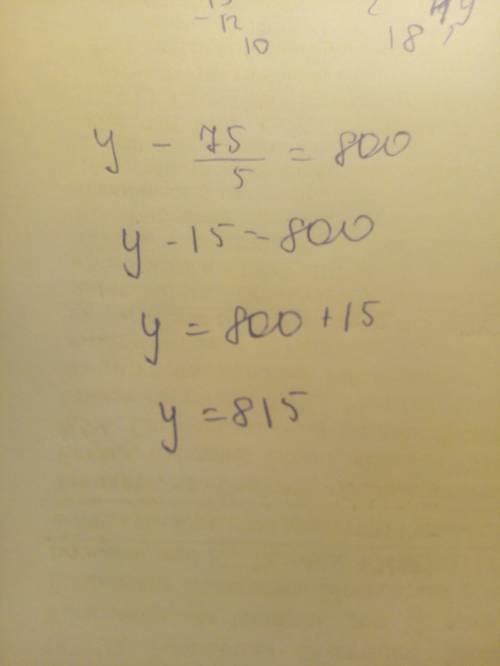 -12
10
18
y - 75/5 = 800
y - 15 = 800
y = 800 + 15
y = 815